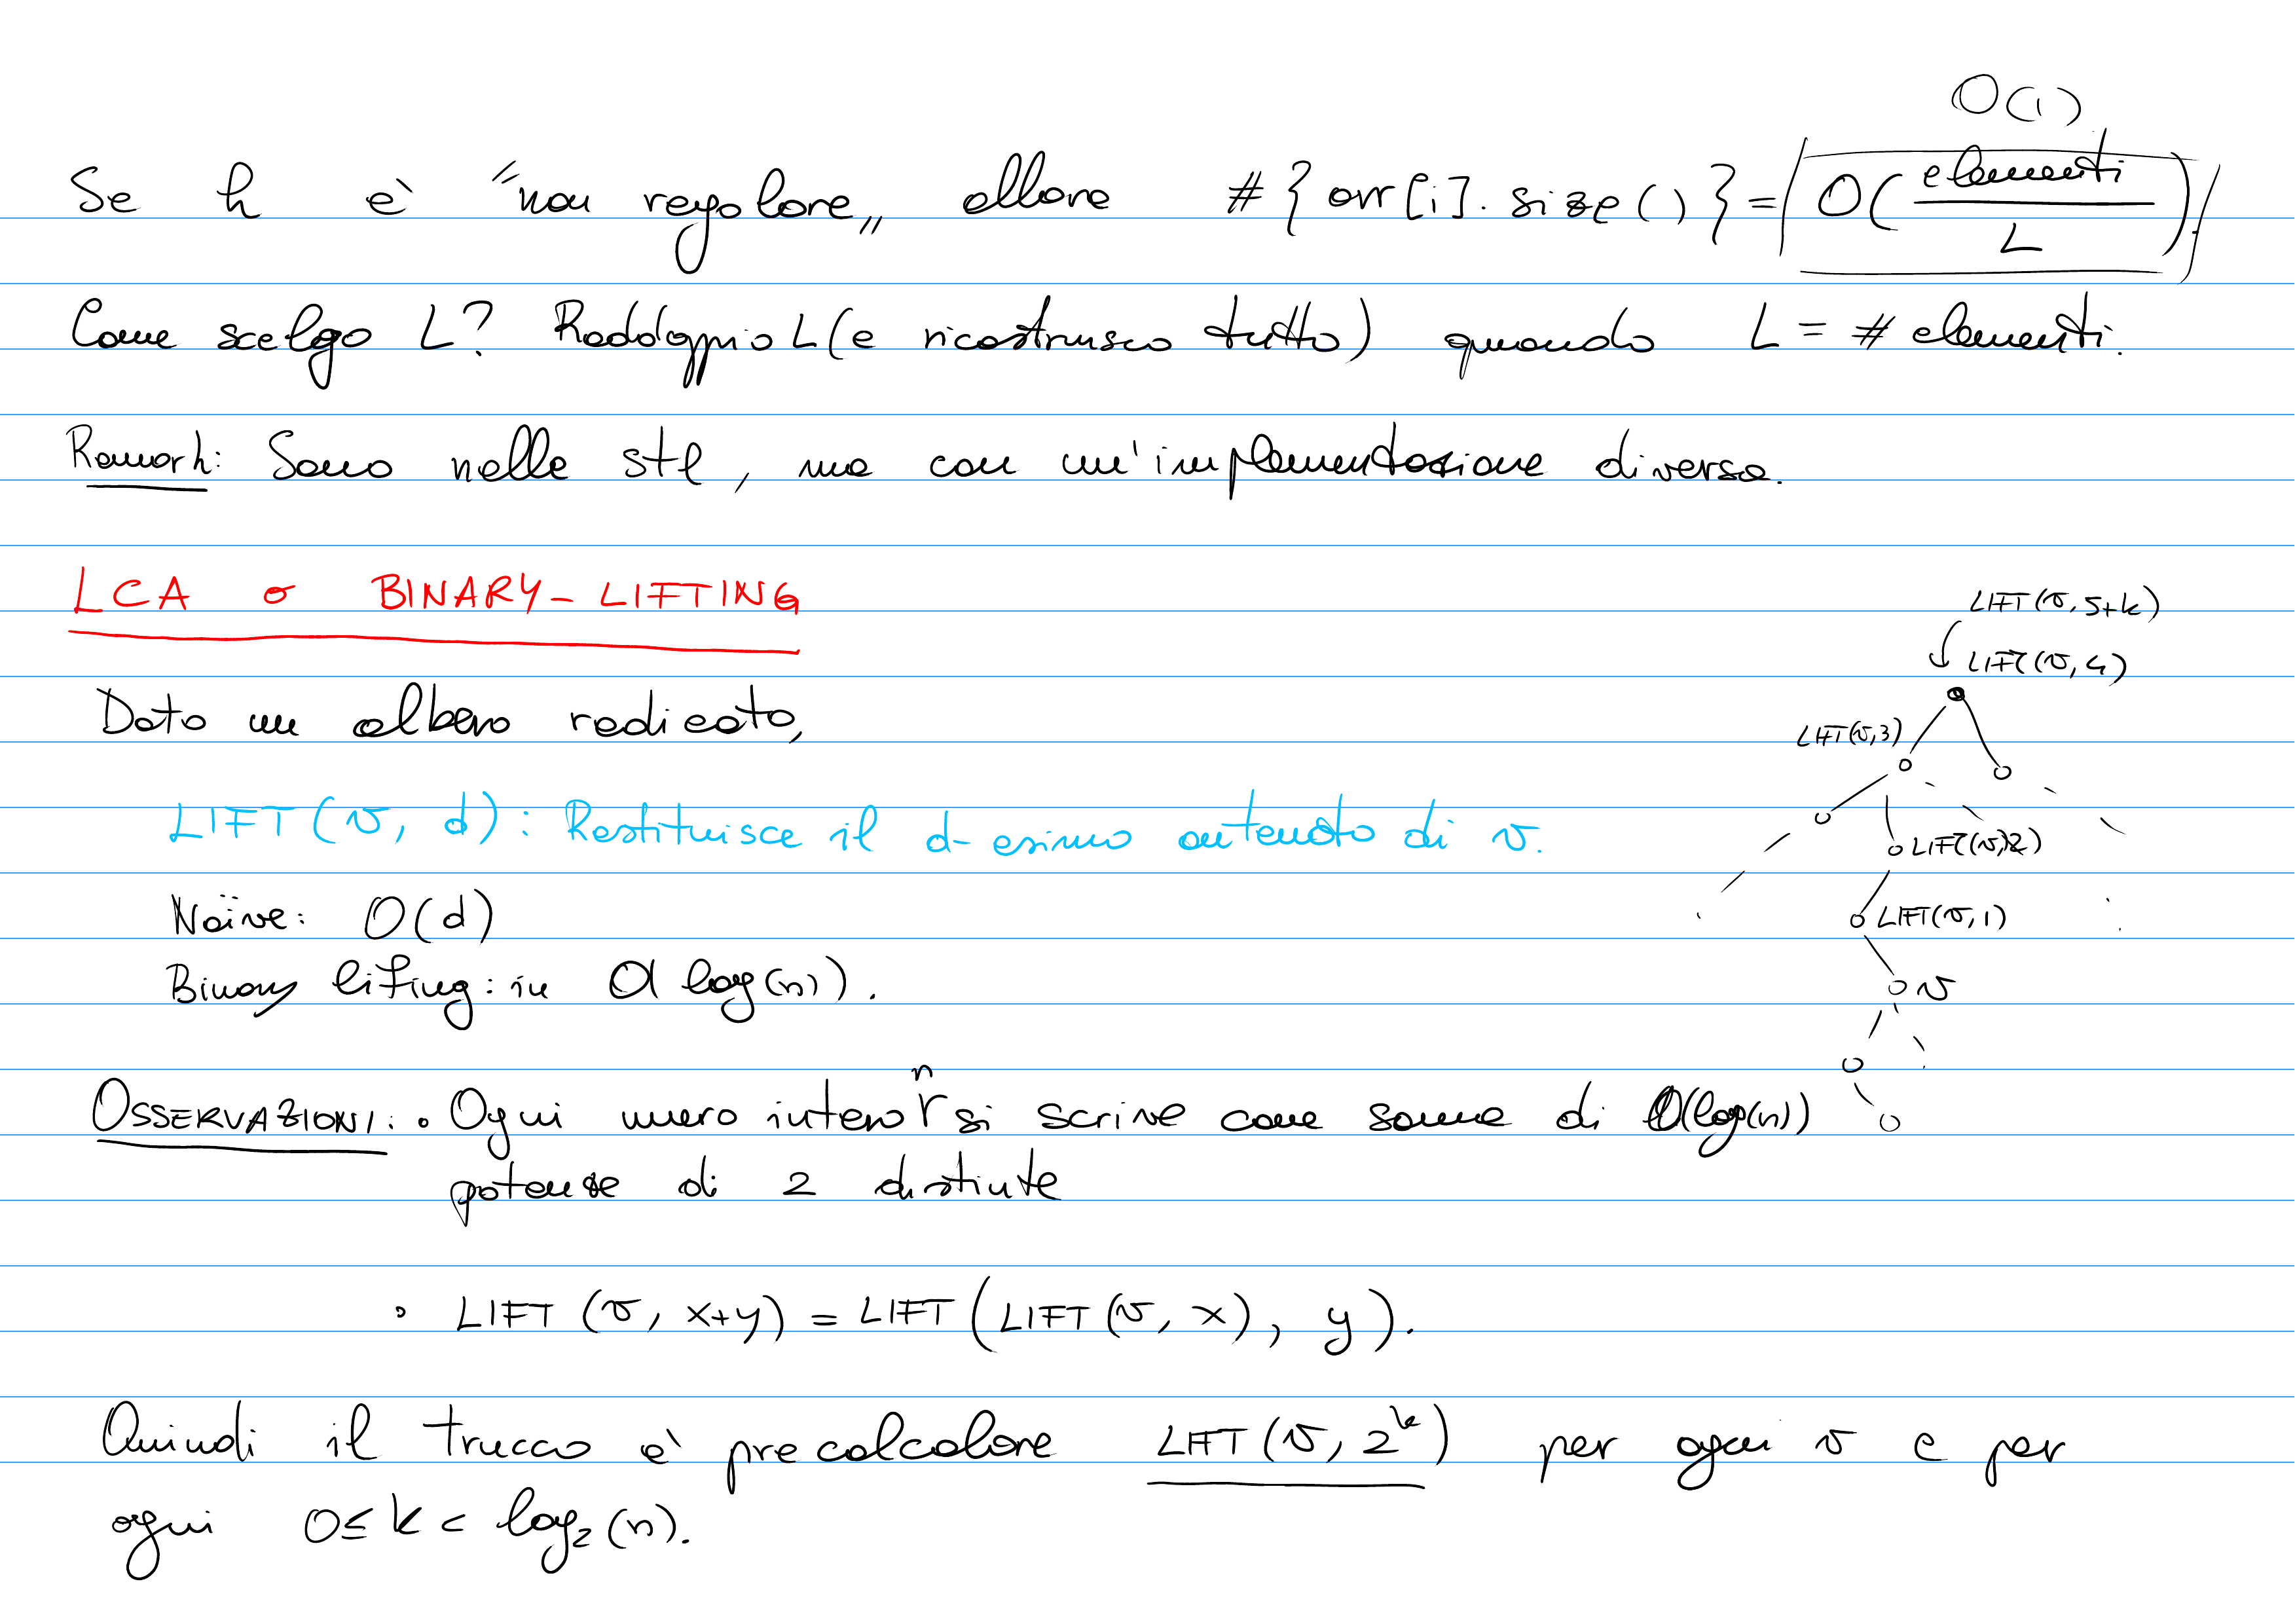 O(1)
Se h è "non regolare„ allora #{arr[i].size()} = O(elementi / L)
Come scelgo L? Raddoppio L (e ricostruisco tutto) quando L = # elementi.
Remark: Sono nella stl, ma con un'implementazione diversa.
LCA o BINARY-LIFTING
LIFT(v, 5+k)
LIFT(v, 4)
Dato un albero radicato,
LIFT(v, 3)
LIFT(v, d): Restituisce il d-esimo antenato di v.
LIFT(v, 2)
Naïve: O(d)
LIFT(v, 1)
Binary lifing: in O(log(n)).
v
OSSERVAZIONI: • Ogni numero intero n si scrive come somma di O(log(n))
potenze di 2 distinte
• LIFT(v, x+y) = LIFT(LIFT(v, x), y).
Quindi il trucco è precalcolare LIFT(v, 2^k) per ogni v e per
ogni 0≤k<log₂(n).